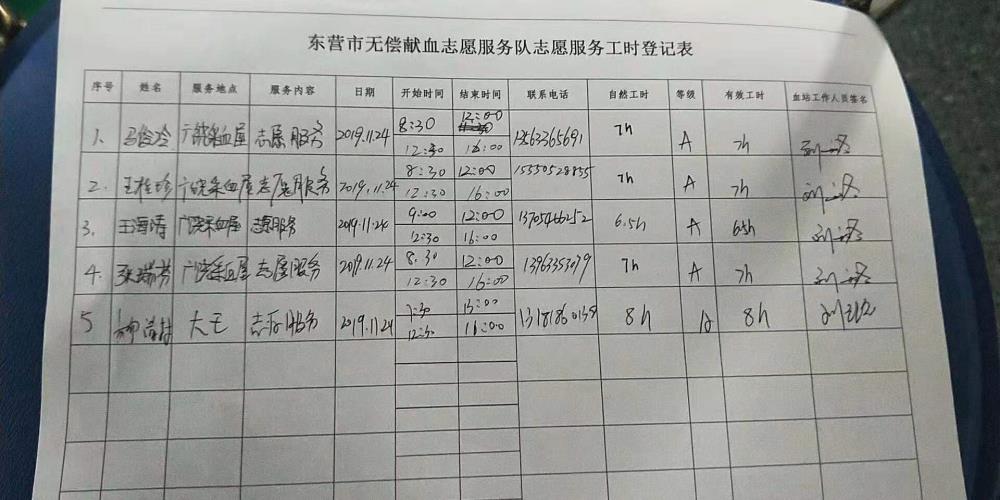 东营市无偿献血志愿服务队志愿服务工时登记表
序号 姓名 服务地点 服务内容 日期 开始时间 结束时间 联系电话 自然工时 等级 有效工时 血站工作人员签名
1、 志愿服务 2019.11.24 8:30 12:00 13563365691 7h A 7h
12:30 16:00
2. 王桂珍 采血屋 志愿服务 2019.11.24 8:30 12:00 15550528835 7h A 7h
12:30 16:00
3. 王海涛 采血屋 志愿服务 2019.11.24 9:00 12:00 13705466252 6.5h A 6.5h
12:30 16:00
4. 张瑞芬 采血屋 志愿服务 2019.11.24 8:30 12:00 13963353079 7h A 7h
12:30 16:00
5 大王 志愿服务 2019.11.24 7:30 8h 8h
12:30 16:00